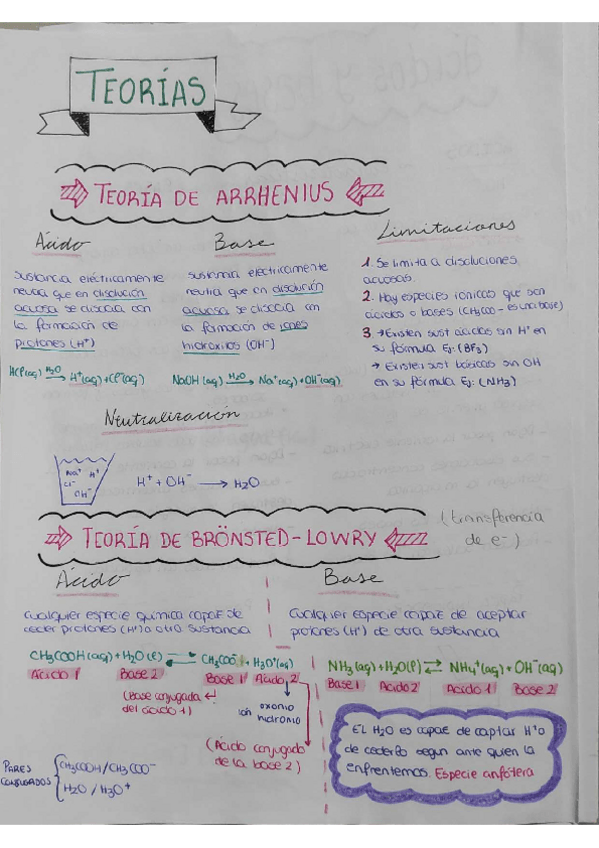 TEORÍAS
TEORÍA DE ARRHENIUS
Ácido
Sustancia eléctricamente
neutra que en disolución
acuosa se disocia con
la formación de
protones (H⁺)
HCl(aq) —H₂O→ H⁺(aq) + Cl⁻(aq)
Base
sustancia eléctricamente
neutra que en disolución
acuosa se disocia con
la formación de iones
hidroxilos (OH⁻)
NaOH (aq) —H₂O→ Na⁺(aq) + OH⁻(aq)
Limitaciones
1. Se limita a disoluciones
acuosas.
2. Hay especies ionicas que son
ácidos o bases (CH₃COO⁻ es una base)
3. → Existen sust ácidas sin H⁺ en
su fórmula Ej: (BF₃)
→ Existen sust básicas sin OH
en su fórmula Ej: (NH₃)
Neutralización
Na⁺ H⁺
Cl⁻
OH⁻
H⁺ + OH⁻ → H₂O
TEORÍA DE BRÖNSTED-LOWRY
(transferencia
de e⁻)
Ácido
Cualquier especie química capaz de
ceder protones (H⁺) a otra sustancia
CH₃COOH (aq) + H₂O (l) ⇌ CH₃COO⁻ + H₃O⁺(aq)
Ácido 1 Base 2 Base 1 Ácido 2
(Base conjugada
del ácido 1)
ión oxonio
hidronio
(Ácido conjugado
de la base 2)
PARES
CONJUGADOS
CH₃COOH / CH₃COO⁻
H₂O / H₃O⁺
Base
Cualquier especie capaz de aceptar
protones (H⁺) de otra sustancia
NH₃ (aq) + H₂O (l) ⇌ NH₄⁺(aq) + OH⁻(aq)
Base 1 Ácido 2 Ácido 1 Base 2
EL H₂O es capaz de captar H⁺ o
de cederlo según ante quien la
enfrentemos. Especie anfótera